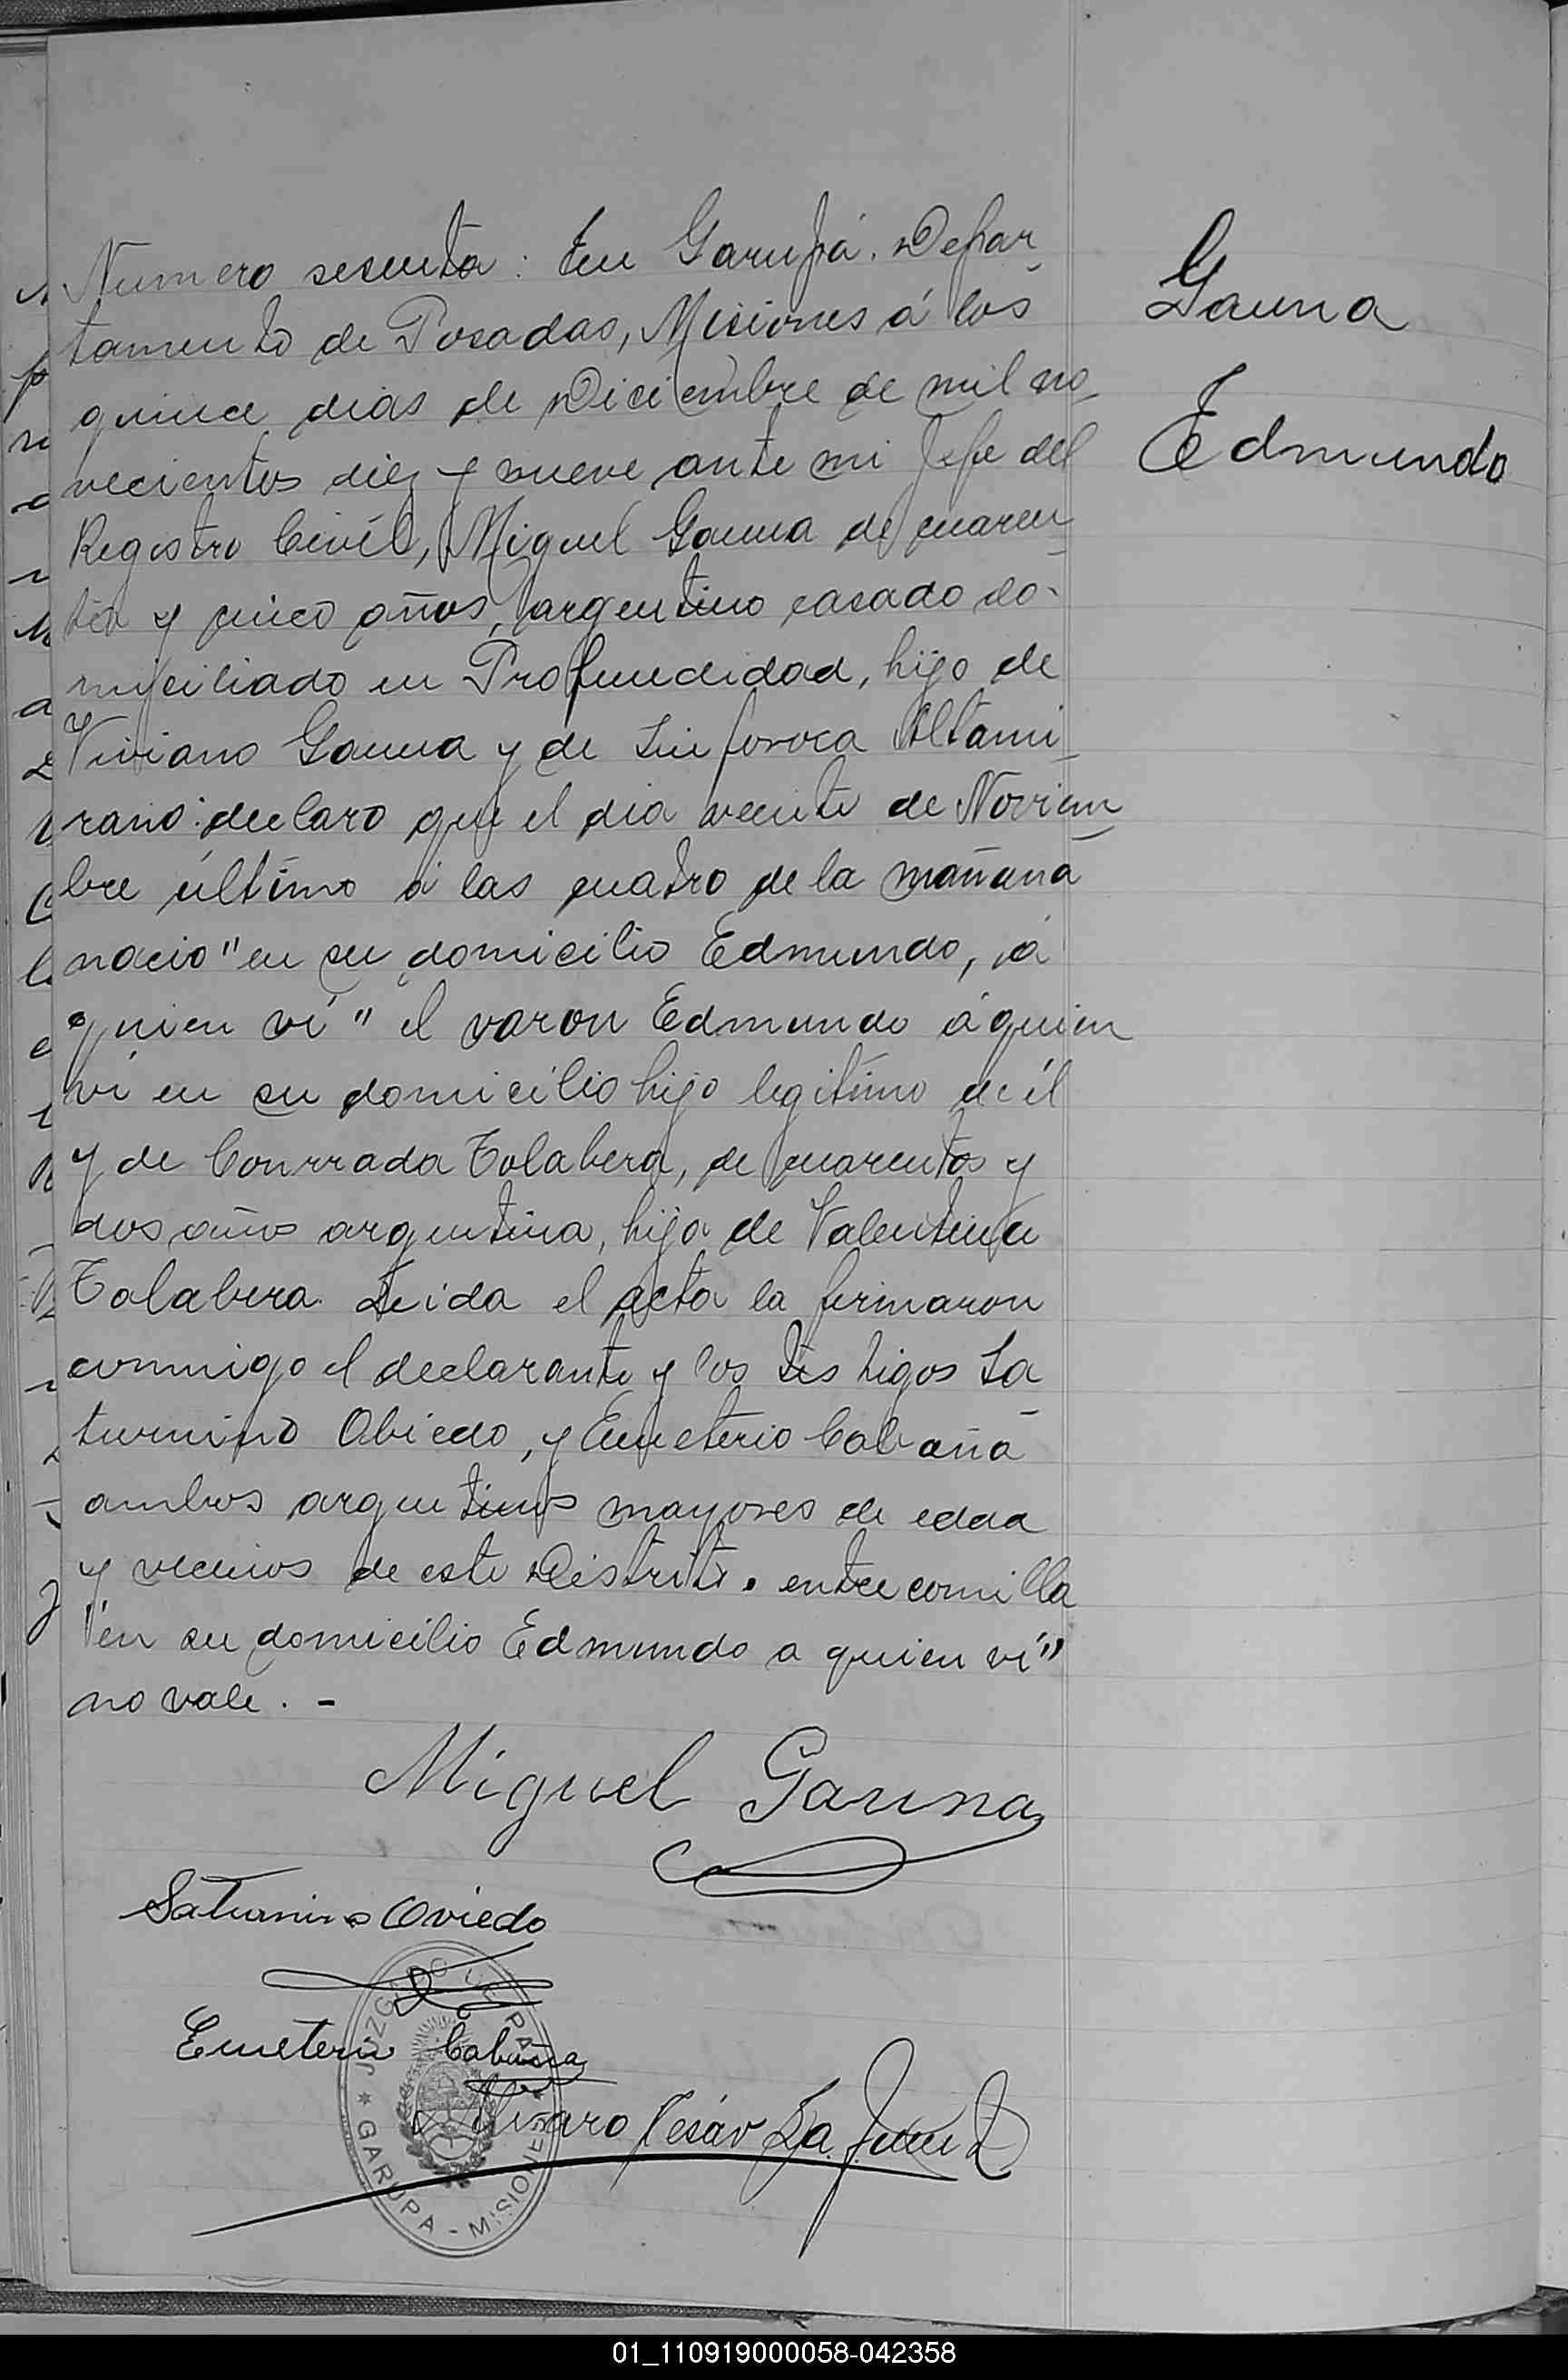 Numero sesenta: En Garupá. Depar-
tamento de Posadas, Misiones á los
quince dias de Diciembre de mil no-
vecientos diez y nueve ante mi Jefe del
Registro Civíl, Miguel Gauna de cuaren-
ta y cinco años, argentino casado do-
miciliado en Profundidad, hijo de
Viviano Gauna y de Sinforoca Altami-
rano: declaro que el dia veinte de Noviem-
bre último á las cuatro de la mañana
nacio "en su domicilio Edmundo, á
quien ví" el varon Edmundo á quien
ví en su domicilio hijo legitimo de él
y de Conrrada Tolabera, de cuarentos y
dos años argentina, hija de Valentina
Tolabera. Leida el acta la firmaron
conmigo el declarante y los testigos Sa-
turnino Obiedo, y Emeterio Cabaña
ambos argentinos mayores de edad
y vecinos de este Distrito. entre comilla
"en su domicilio Edmundo a quien ví"
no vale. -
Gauna
Edmundo
Miguel Gauna
Saturnino Oviedo
Emeterio Cabaña
Cesár La
JUZGADO DE PAZ
* GARUPA - MISIONES *
01_110919000058-042358